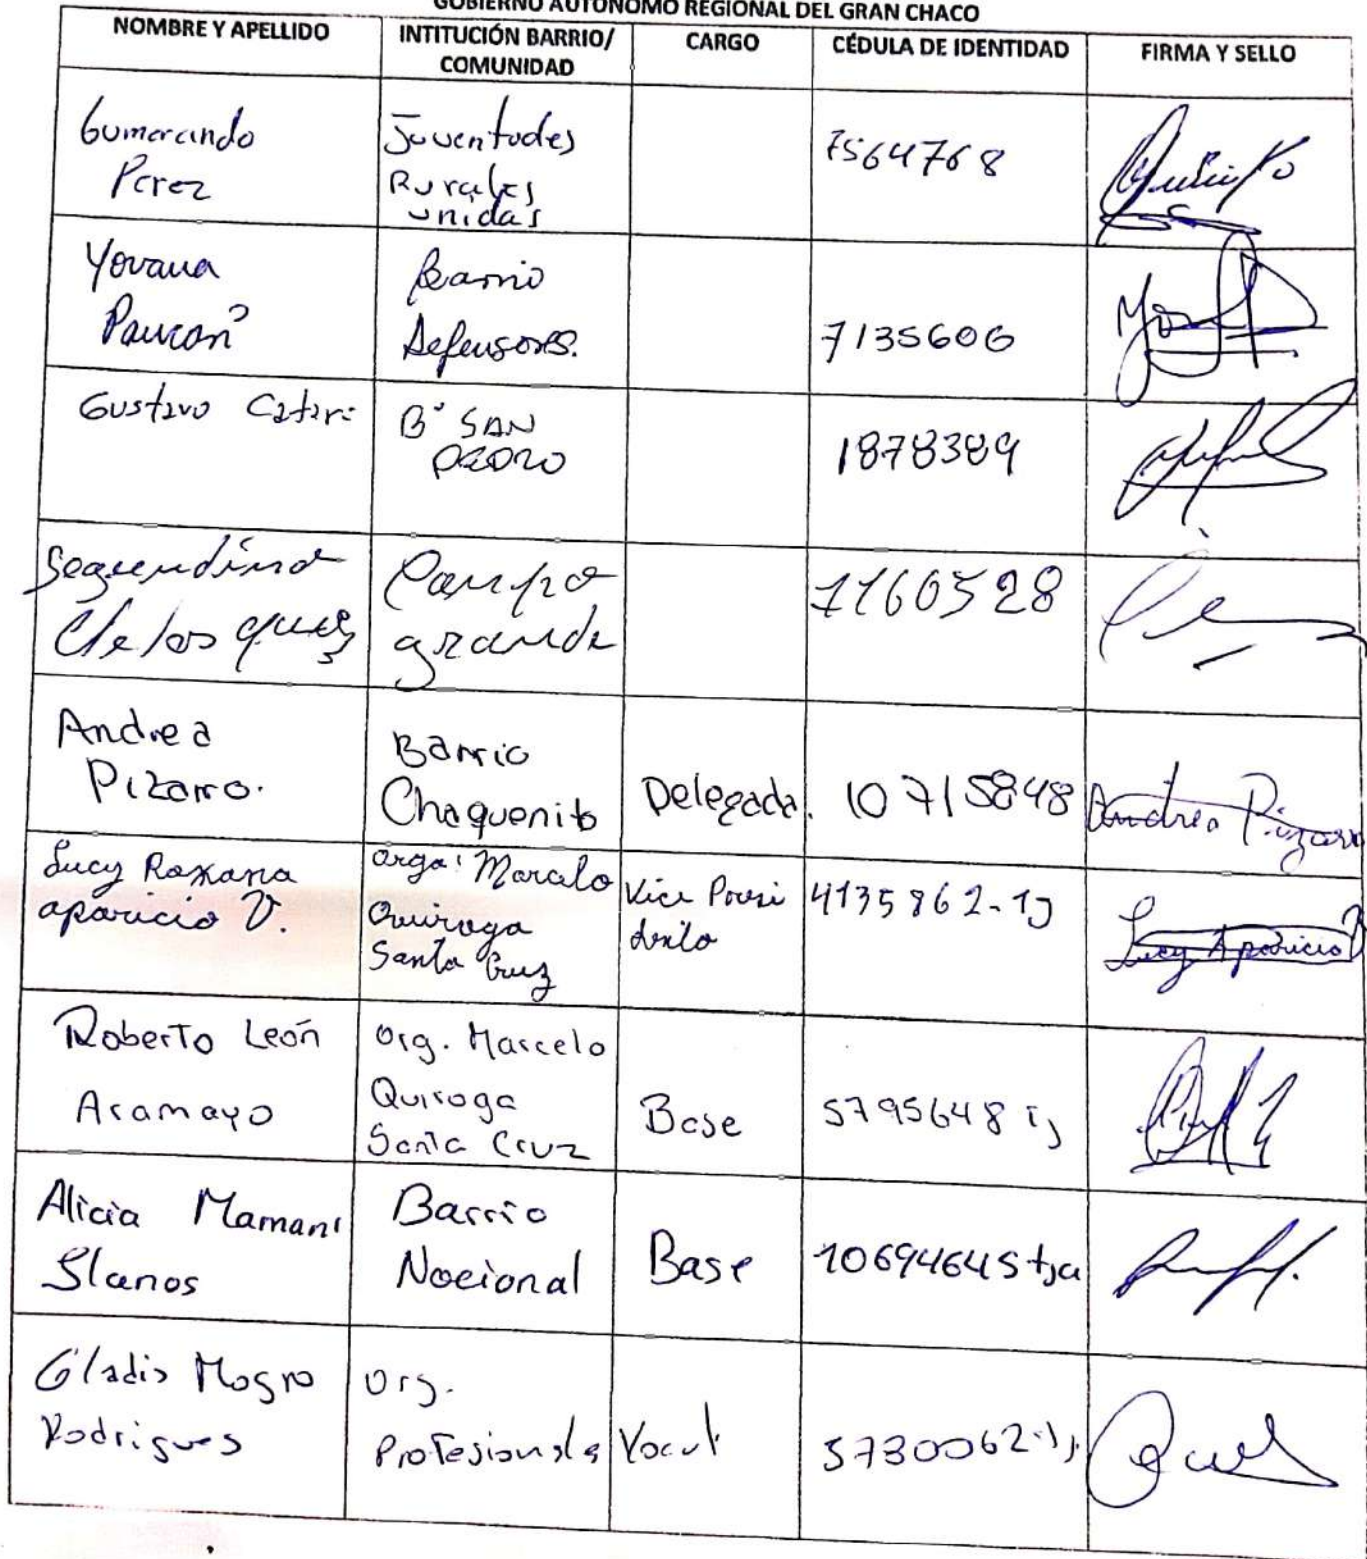 GOBIERNO AUTÓNOMO REGIONAL DEL GRAN CHACO
NOMBRE Y APELLIDO
INTITUCIÓN BARRIO/
COMUNIDAD
CARGO
CÉDULA DE IDENTIDAD
FIRMA Y SELLO
Gumercindo
Perez
Juventudes
Rurales
unidas
7564768
Yovana
Barrio
Defensores.
7135606
Gustavo Catari
B° SAN
PEDRO
1878389
Segundina
Campo
grande
1160528
Andrea
Pizarro.
Barrio
Chaqueñito
Delegada.
10715848
Andrea Pizarro
Lucy Roxana
aparicio V.
Orga: Marcelo
Quiroga
Santa Cruz
Vice Presi
dente
4135862-Tj
Lucy Aparicio V
Roberto León
Aramayo
Org. Marcelo
Quiroga
Santa Cruz
Base
5795648 Tj
Alicia Mamani
Llanos
Barrio
Nacional
Base
10694645 tja
Gladis Mogro
Rodrigues
Org.
Profesionales
Vocal
5730062-Tj.